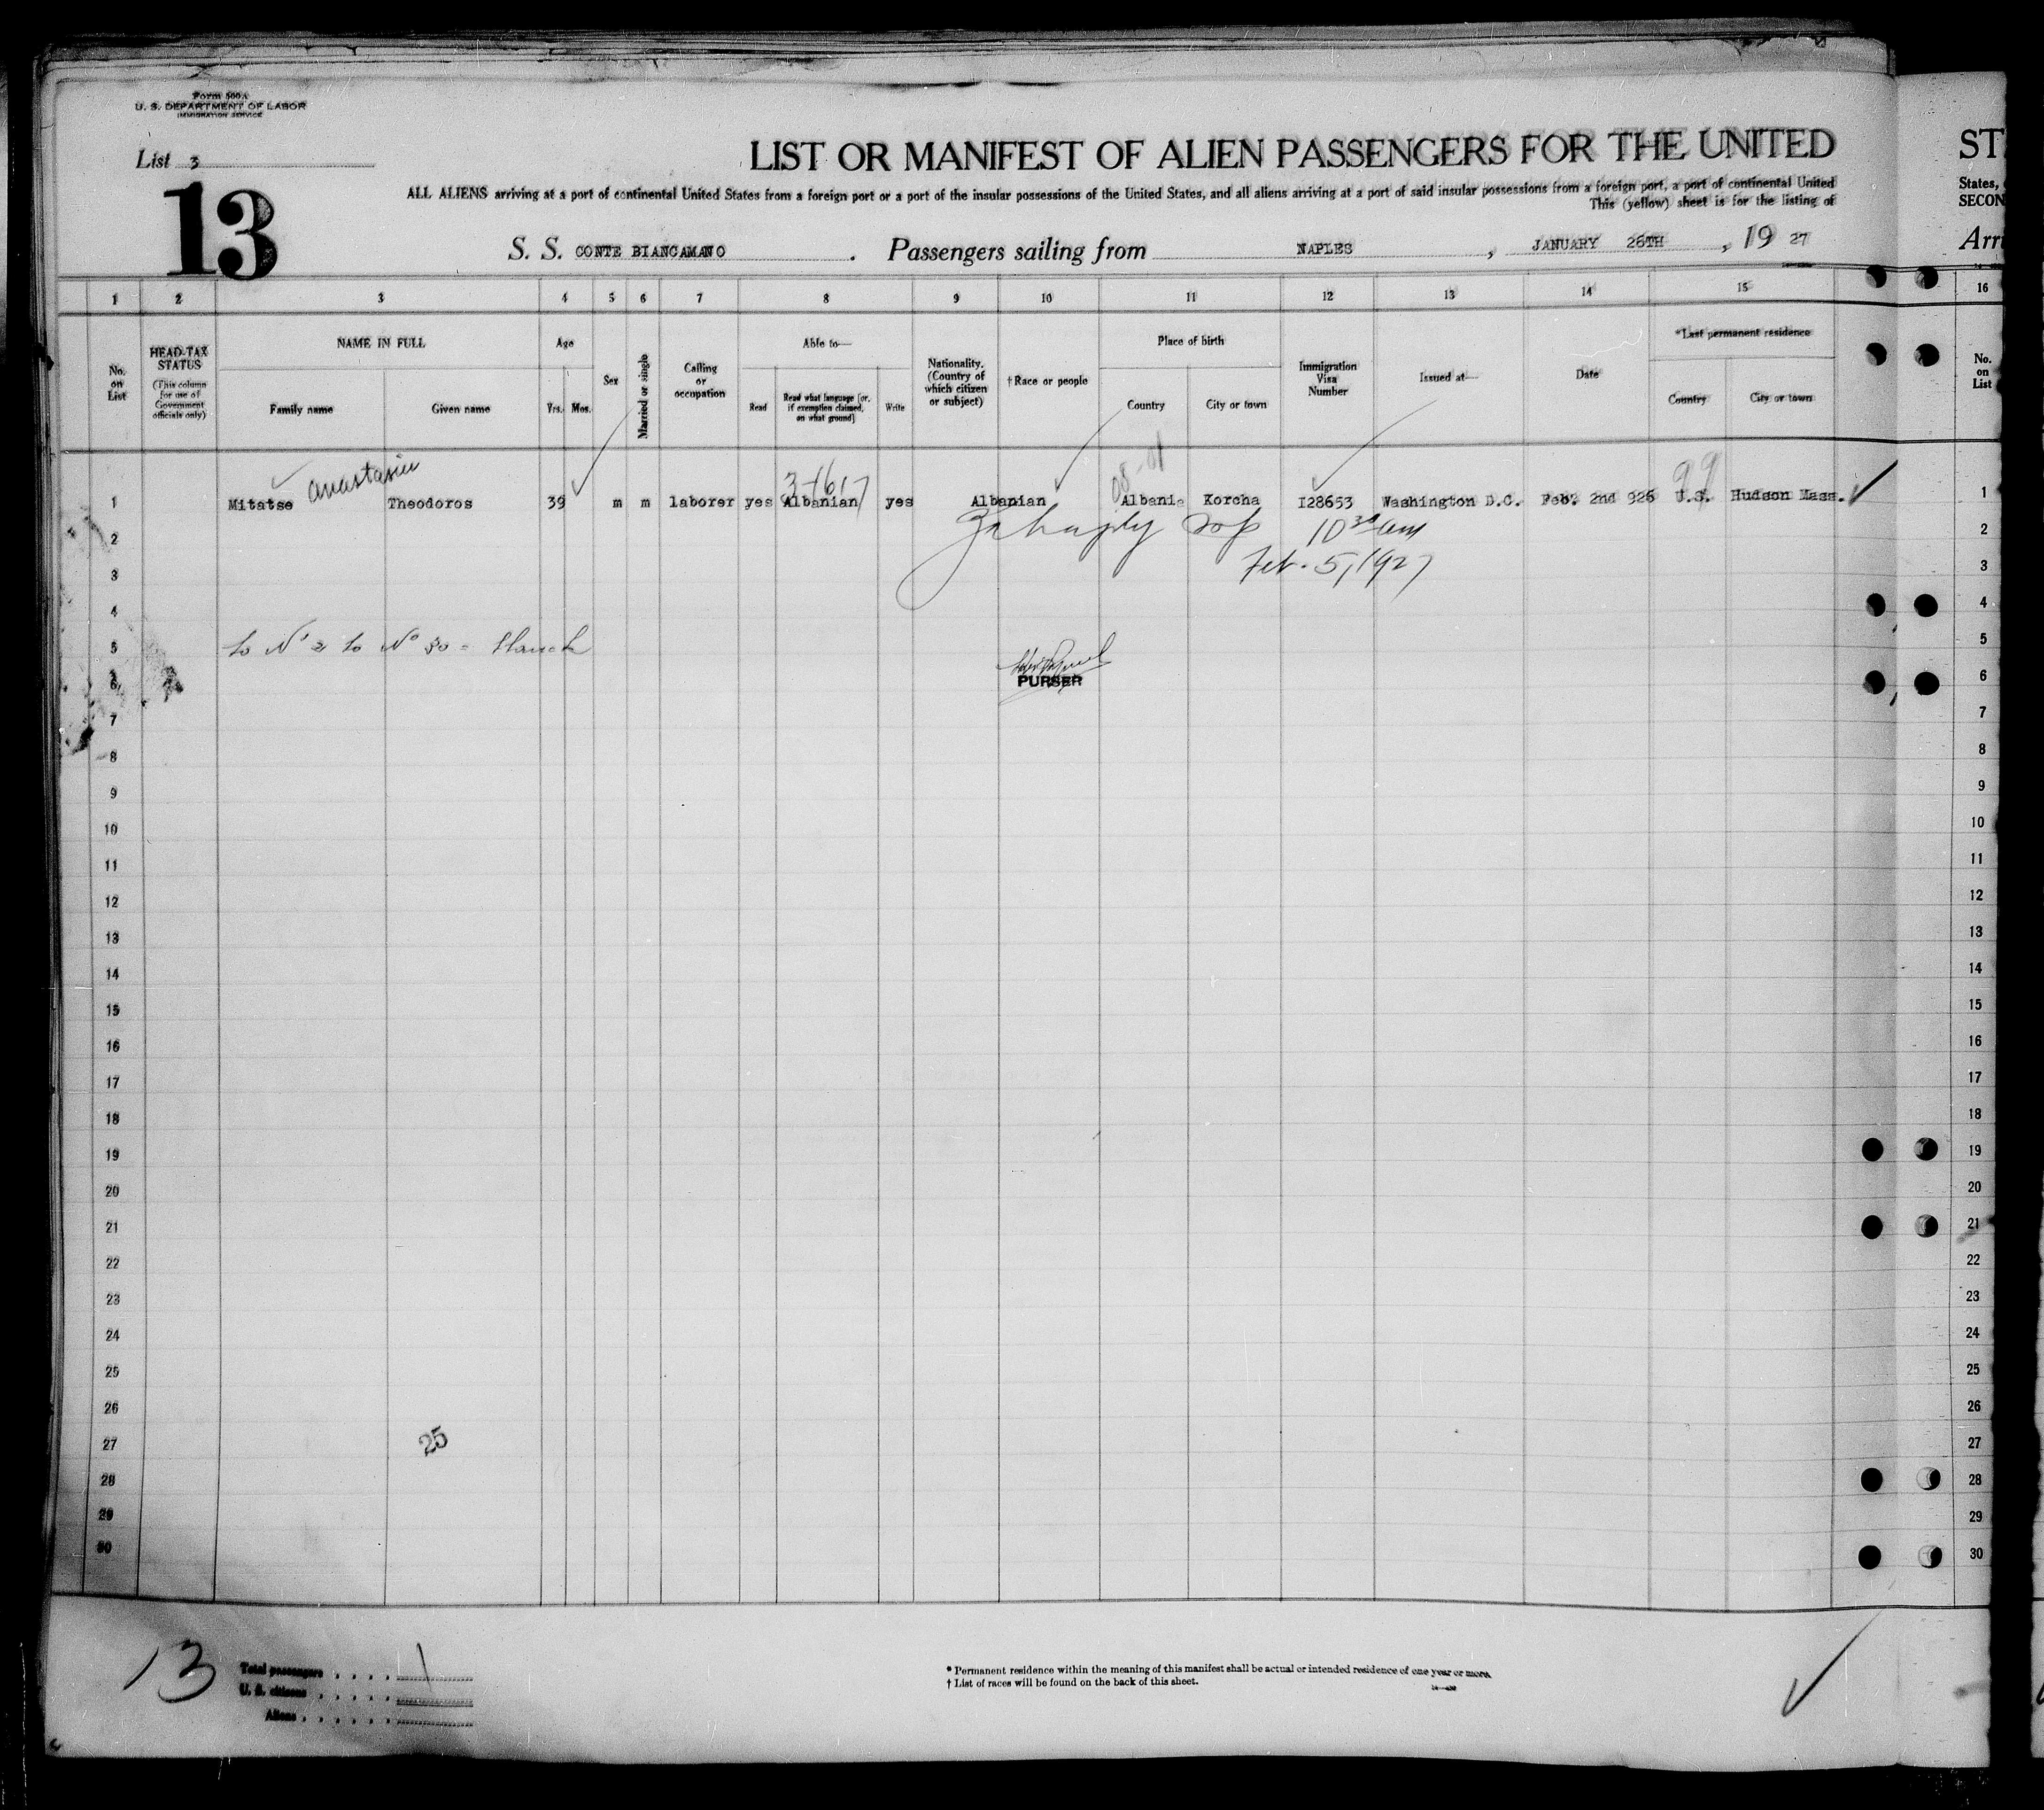 Form 500A
U. S. DEPARTMENT OF LABOR
IMMIGRATION SERVICE
List 3
13
LIST OR MANIFEST OF ALIEN PASSENGERS FOR THE UNITED
ST
ALL ALIENS arriving at a port of continental United States from a foreign port or a port of the insular possessions of the United States, and all aliens arriving at a port of said insular possessions from a foreign port, a port of continental United
States,
This (yellow) sheet is for the listing of
SECON
S. S. CONTE BIANCAMANO . Passengers sailing from NAPLES , JANUARY 26TH , 19 27
Arri
1 2 3 4 5 6 7 8 9 10 11 12 13 14 15 16
No. on List
HEAD-TAX STATUS (This column for use of Government officials only)
NAME IN FULL
Family name Given name
Age
Yrs. Mos.
Sex
Married or single
Calling or occupation
Able to—
Read
Read what language [or, if exemption claimed, on what ground]
Write
Nationality. (Country of which citizen or subject)
†Race or people
Place of birth
Country City or town
Immigration Visa Number
Issued at—
Date
*Last permanent residence
Country City or town
No. on List
08-01
99
1 Mitatse Anastasiu Theodoros 39 m m laborer yes Albanian yes Albanian Albania Korcha I28653 Washington D.C. Feb. 2nd 926 U.S. Hudson Mass. 1
2 10 30 am 2
3 Feb. 5, 1927 3
4 4
5 to No 30 = 5
PURSER
6 6
7 7
8 8
9 9
10 10
11 11
12 12
13 13
14 14
15 15
16 16
17 17
18 18
19 19
20 20
21 21
22 22
23 23
24 24
25 25
26 26
27 25 27
28 28
29 29
30 30
13
Total passengers . . . . 1
U. S. citizens . . . . .
Aliens . . . . . .
* Permanent residence within the meaning of this manifest shall be actual or intended residence of one year or more.
† List of races will be found on the back of this sheet.